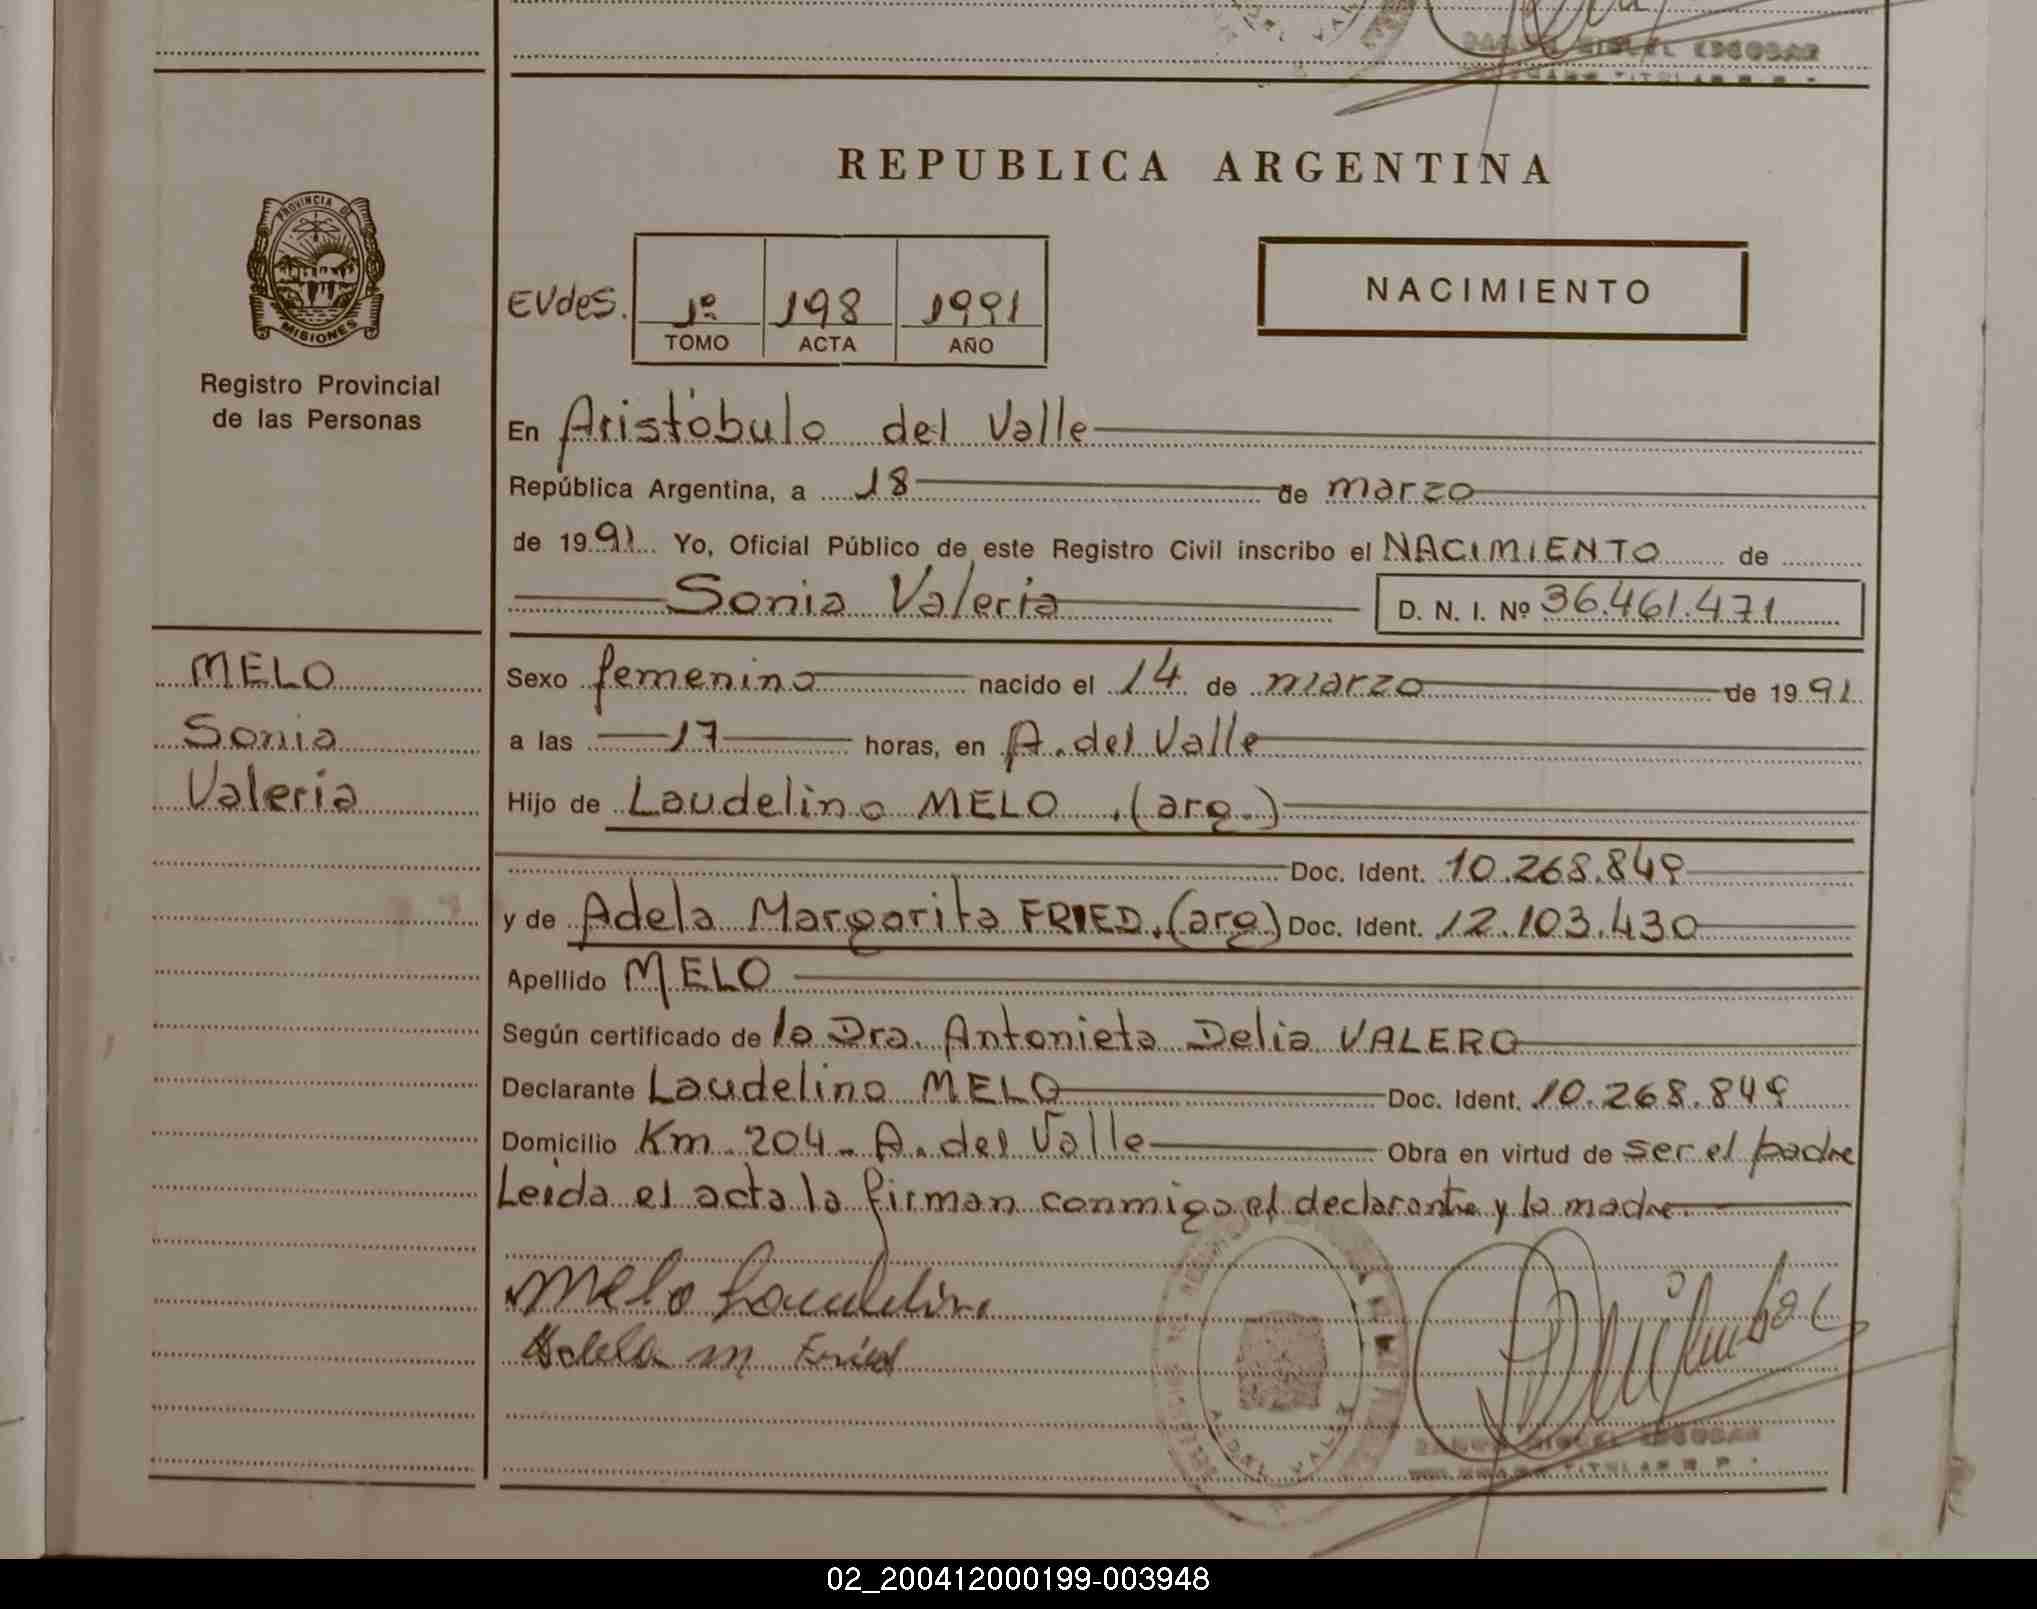 REPUBLICA ARGENTINA
PROVINCIA DE
MISIONES
Registro Provincial
de las Personas
EVdes.
1º 198 1991
TOMO ACTA AÑO
NACIMIENTO
En Aristóbulo del Valle
República Argentina, a 18 de marzo
de 1991 Yo, Oficial Público de este Registro Civil inscribo el NACIMIENTO de
Sonia Valeria D. N. I. Nº 36.461.471
MELO
Sonia
Valeria
Sexo femenino nacido el 14 de marzo de 1991
a las 17 horas, en A. del Valle
Hijo de Laudelino MELO, (arg.)
Doc. Ident. 10.268.849
y de Adela Margarita FRIED, (arg) Doc. Ident. 12.103.430
Apellido MELO
Según certificado de la Dra. Antonieta Delia VALERO
Declarante Laudelino MELO Doc. Ident. 10.268.849
Domicilio Km. 204 - A. del Valle Obra en virtud de ser el padre
Leida el acta la firman conmigo el declarante y la madre
Melo Laudelino
Adela M Fried
A. DEL VALLE
MIGUEL ESCOBAR
TITULAR R. P.
02_200412000199-003948